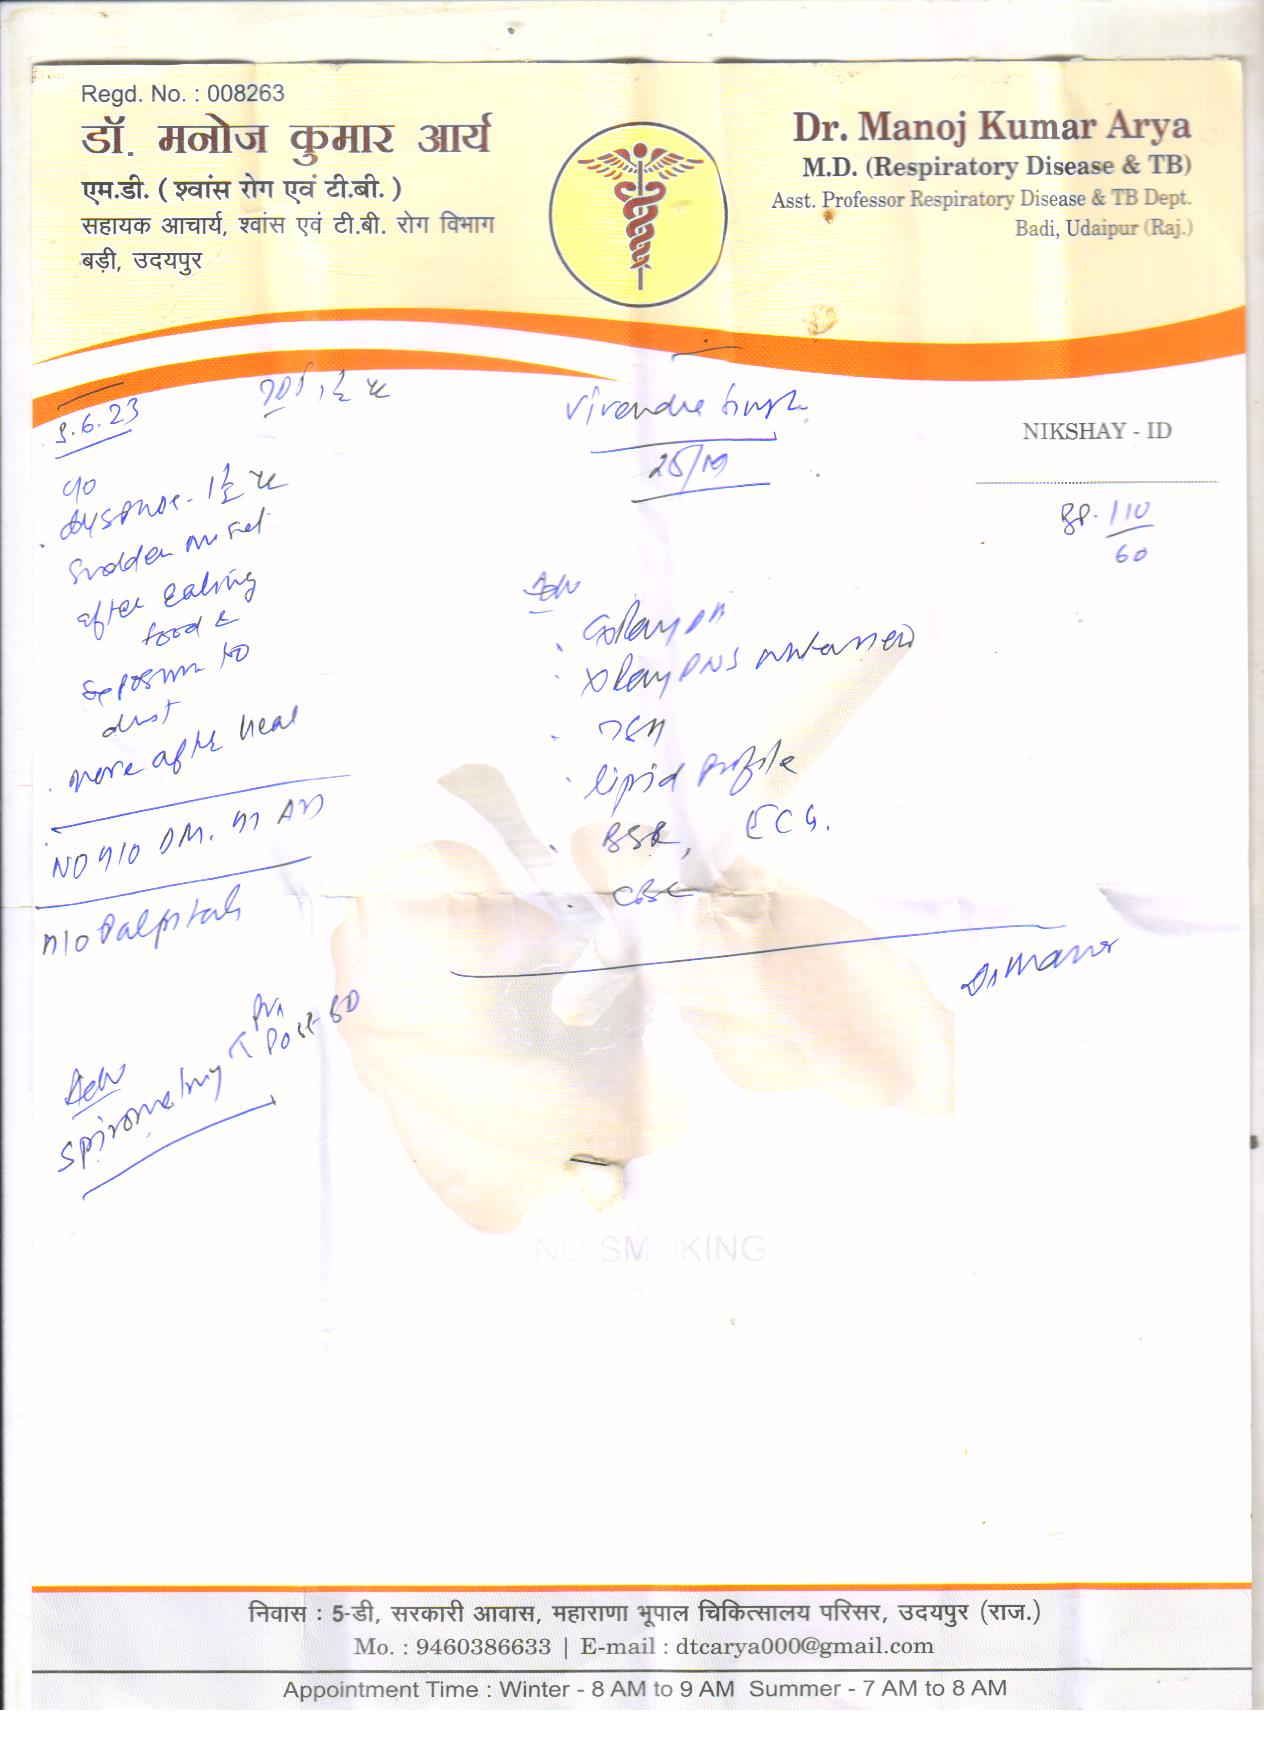 Regd. No. : 008263
डॉ. मनोज कुमार आर्य
एम.डी. ( श्वांस रोग एवं टी.बी. )
सहायक आचार्य, श्वांस एवं टी.बी. रोग विभाग
बड़ी, उदयपुर
Dr. Manoj Kumar Arya
M.D. (Respiratory Disease & TB)
Asst. Professor Respiratory Disease & TB Dept.
Badi, Udaipur (Raj.)
.6.23
Virendra Singh
25/M
NIKSHAY - ID
BP. 110
60
c/o
dyspnoe - 1½ yr
Sudden onset
after eating
food &
exposure to
dust
more after heal
NO H/O DM. HTN
H/O Palpitatn
Adv
Spirometry
Post-BD
Adv
Xray PA
Xray PNS
lipid profile
BSR, ECG.
CBC
Dr Manoj
NO SM KING
निवास : 5-डी, सरकारी आवास, महाराणा भूपाल चिकित्सालय परिसर, उदयपुर (राज.)
Mo. : 9460386633 | E-mail : dtcarya000@gmail.com
Appointment Time : Winter - 8 AM to 9 AM Summer - 7 AM to 8 AM